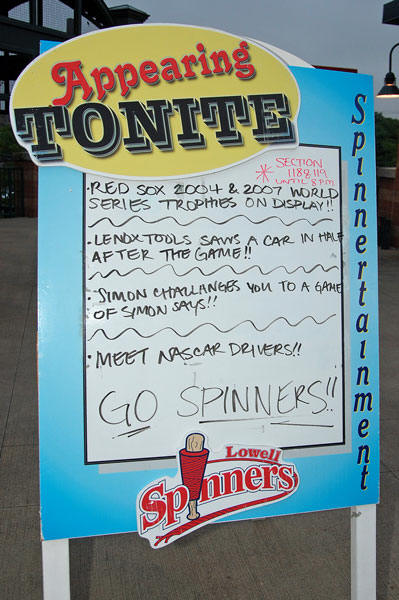 Appearing
TONITE
* SECTION
118&119
UNTIL 8PM
• RED SOX 2004 & 2007 WORLD
SERIES TROPHIES ON DISPLAY!!
• LENOX TOOLS SAWS A CAR IN HALF
AFTER THE GAME!!
• SIMON CHALLANGES YOU TO A GAME
OF SIMON SAYS!!
• MEET NASCAR DRIVERS!!
GO SPINNERS!!
Spinnertainment
Lowell
Spinners